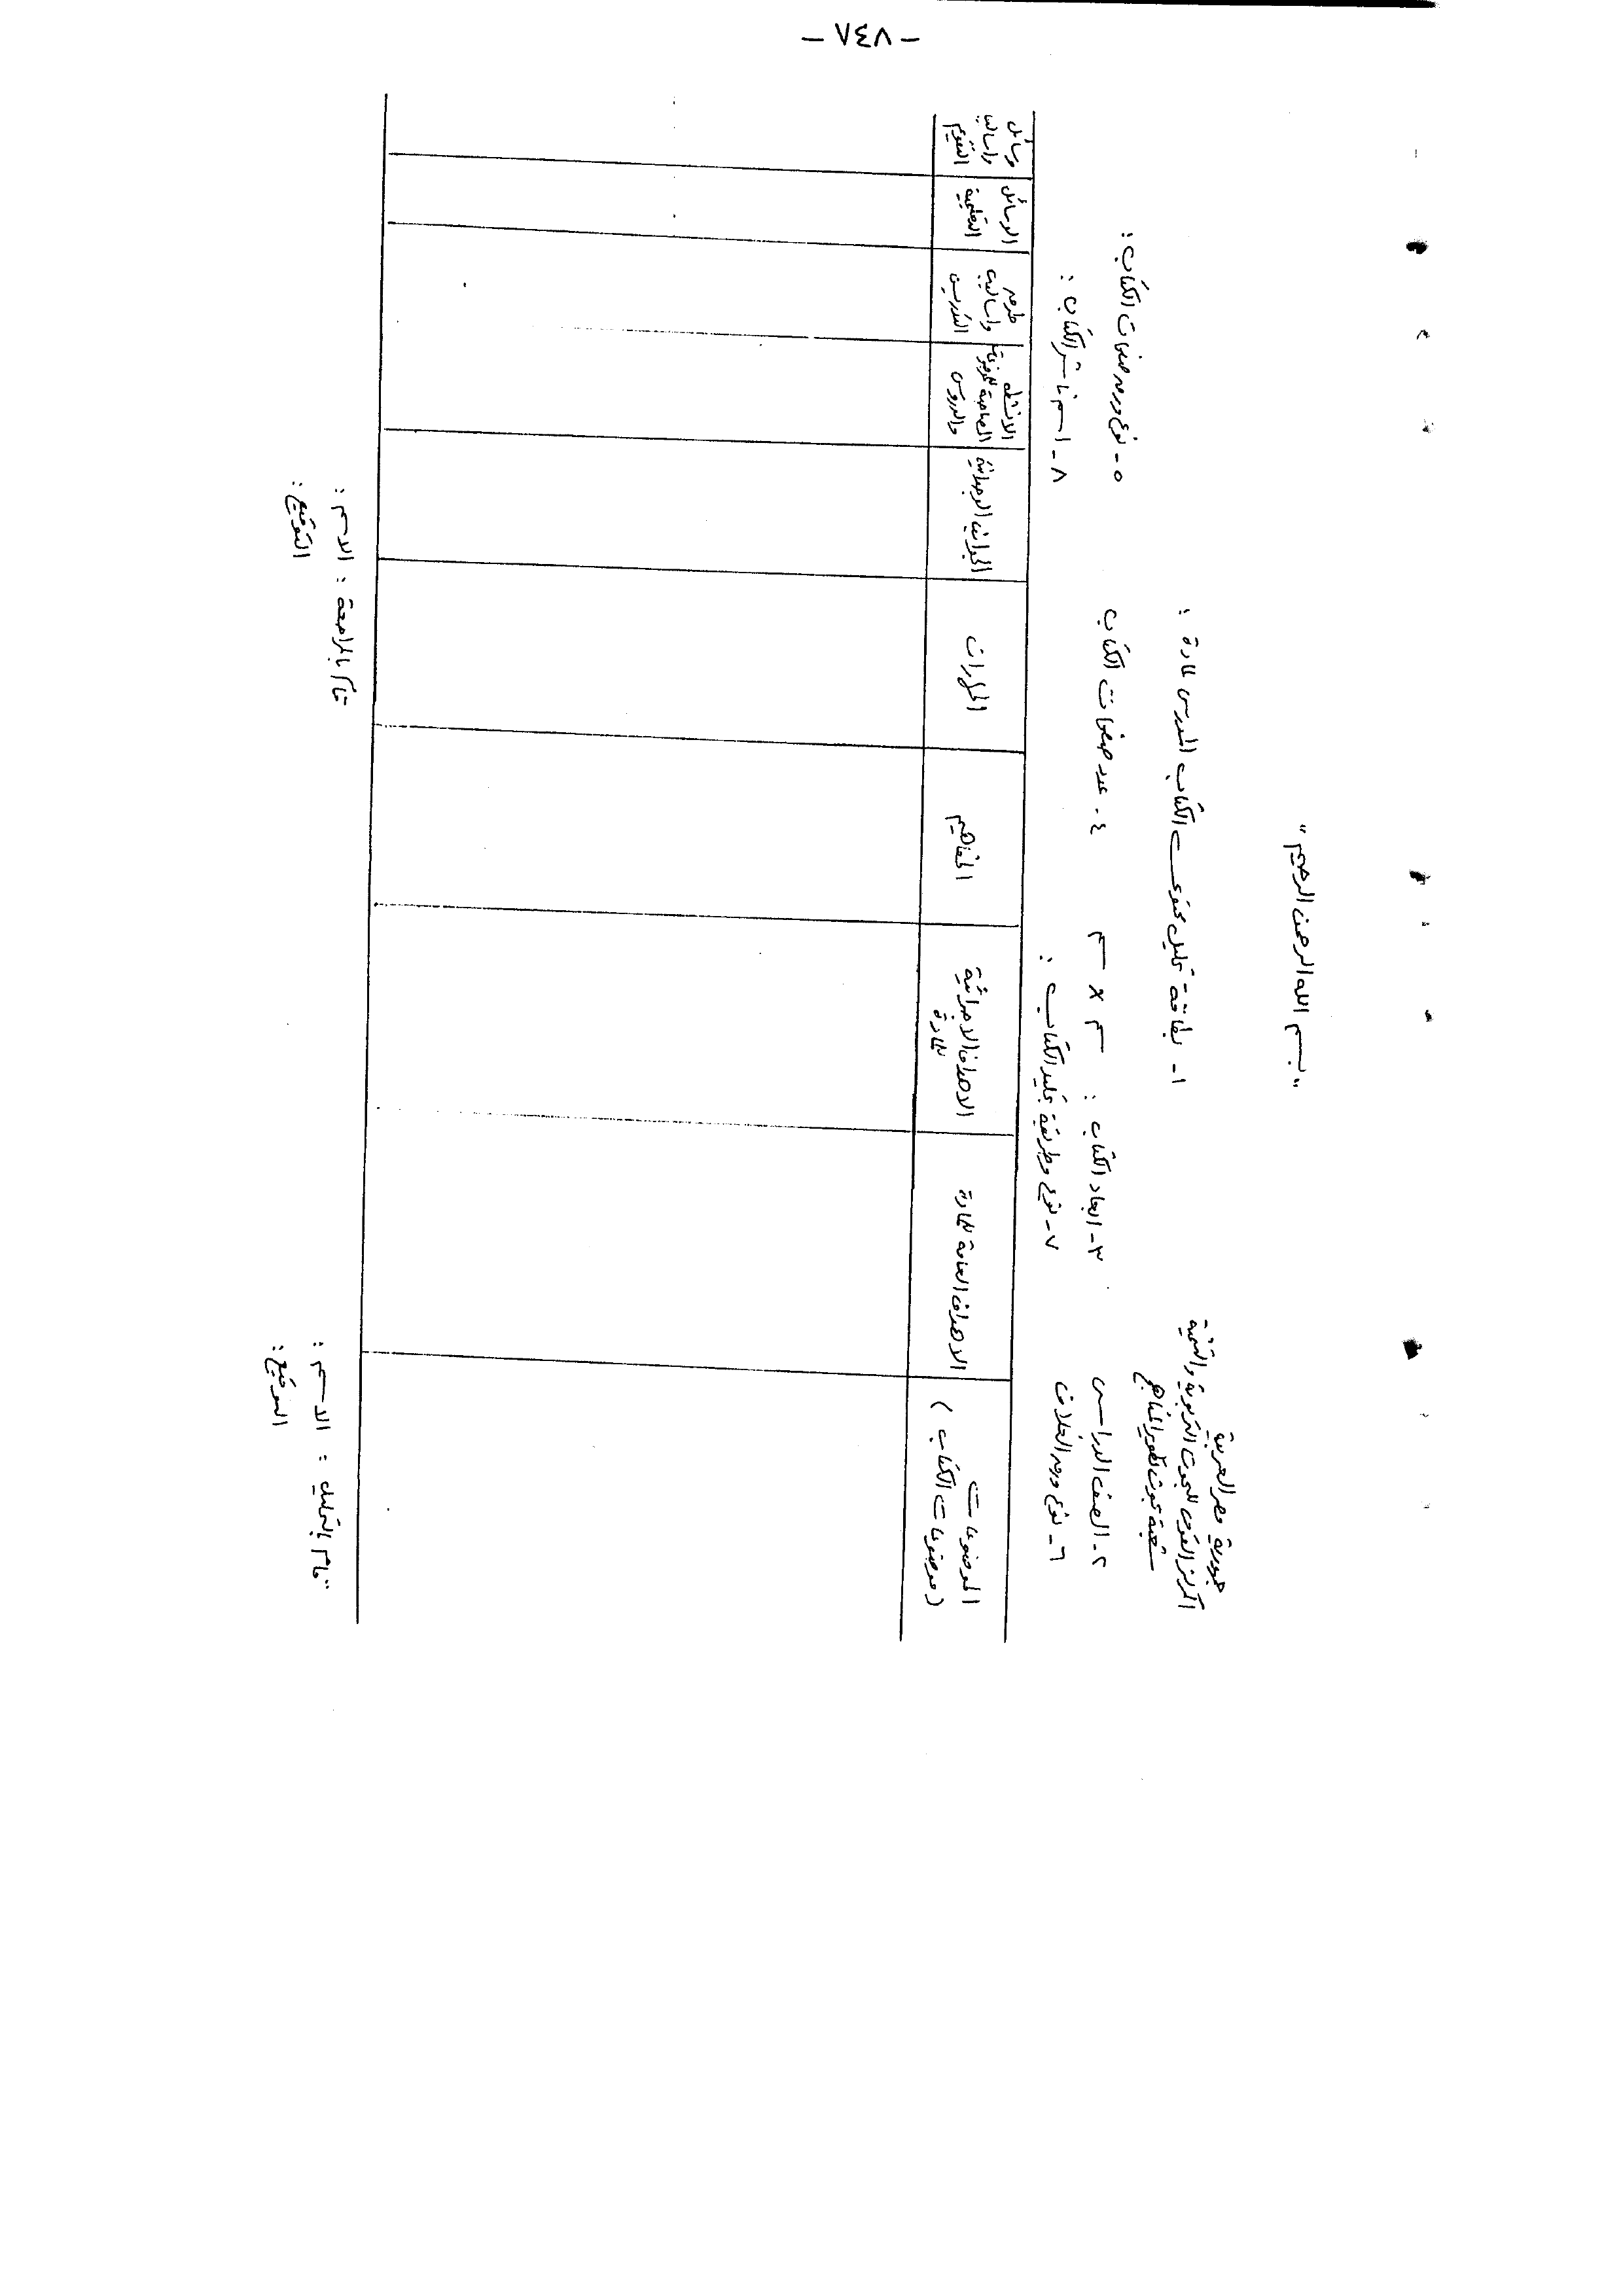 - ٧٤٨ -
"بسم الله الرحمن الرحيم"
جمهورية مصر العربية
المركز القومى للبحوث التربوية والتنمية
شعبة بحوث تطوير المناهج
١- بطاقة تحليل محتوى الكتاب المدرسى لمادة :
٢- الصف الدراسى
٣- ابعاد الكتاب : سم × سم
٤- عدد صفحات الكتاب
٥- نوع ورق صفحات الكتاب :
٦- نوع ورق الغلاف
٧- نوع وطريقة تجليد الكتاب :
٨- اسم ناشر الكتاب :
الموضوعات
(موضوعات الكتاب)
الاهداف العامة للمادة
الاهداف الاجرائية
للمادة
المفاهيم
المهارات
الجوانب الوجدانية
الانشطه
المصاحبة للموضوعات
والدروس
طرق
واساليب
التدريس
الوسائل
التعليمية
وسائل
واساليب
التقويم
قام بالتحليل : الاسم :
التوقيع :
قام بالمراجعة : الاسم :
التوقيع :